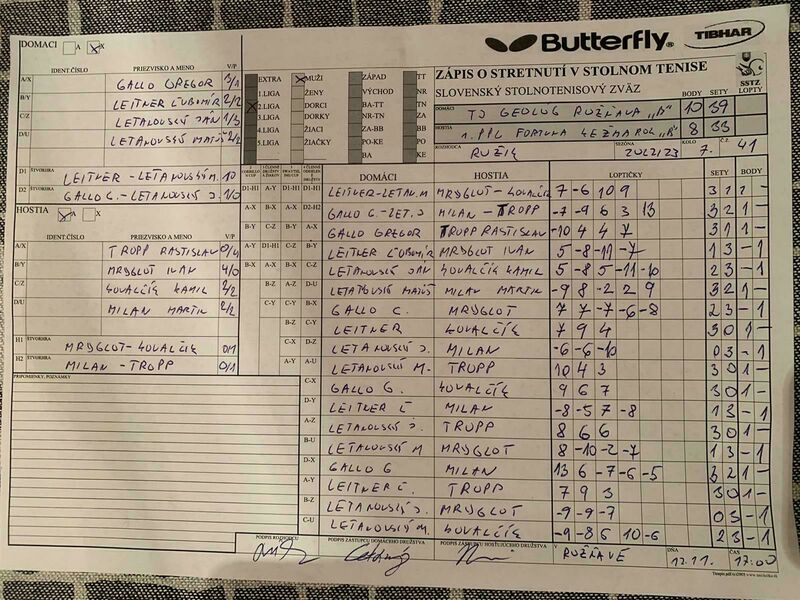 Butterfly®
TIBHAR
DOMÁCI A X
IDENT.ČÍSLO PRIEZVISKO A MENO V/P
A/X GALLO GREGOR 3/1
B/Y LEITNER ĽUBOMÍR 2/2
C/Z LETANOVSKÝ JÁN 1/3
D/U LETANOVSKÝ MATÚŠ 2/2
D1 ŠTVORHRA LEITNER - LETANOVSKÝ M. 1/0
D2 GALLO G. - LETANOVSKÝ J. 1/0
HOSTIA A X
IDENT.ČÍSLO PRIEZVISKO A MENO V/P
A/X TROPP RASTISLAV 0/4
B/Y MRYGLOT IVAN 4/0
C/Z KOVALČÍK KAMIL 2/2
D/U MILAN MARTIN 2/2
H1 ŠTVORHRA MRYGLOT - KOVALČÍK 0/1
H2 ŠTVORHRA MILAN - TROPP 0/1
PRIPOMIENKY, POZNÁMKY
EXTRA MUŽI ZÁPAD TT
1.LIGA ŽENY VÝCHOD NR
2.LIGA DORCI BA-TT TN
3.LIGA DORKY NR-TN ZA
4.LIGA ŽIACI ZA-BB BB
5.LIGA ŽIAČKY KE-PO PO
BA KE
ZÁPIS O STRETNUTÍ V STOLNOM TENISE
SLOVENSKÝ STOLNOTENISOVÝ ZVÄZ
SSTZ
BODY SETY LOPTY
DOMÁCI TJ GEOLÓG ROŽŇAVA "B" 10 39
HOSTIA 1. PPL FORTUNA KEŽMAROK "B" 8 33
ROZHODCA RUŽIK SEZÓNA 2022/23 KOLO 7. Č.Z. 41
DOMÁCI HOSTIA LOPTIČKY SETY BODY
LEITNER-LETAN.M MRYGLOT-KOVALČÍK 7 -6 10 9 3 1 1 -
GALLO G.-LET.J MILAN - TROPP -7 -9 6 3 13 3 2 1 -
GALLO GREGOR TROPP RASTISLAV -10 4 4 7 3 1 1 -
LEITNER ĽUBOMÍR MRYGLOT IVAN 5 -8 -11 -7 1 3 - 1
LETANOVSKÝ JÁN KOVALČÍK KAMIL 5 -8 5 -11 -10 2 3 - 1
LETANOVSKÝ MATÚŠ MILAN MARTIN -9 8 -2 2 9 3 2 1 -
GALLO G. MRYGLOT 7 7 -7 -6 -8 2 3 - 1
LEITNER KOVALČÍK 7 9 4 3 0 1 -
LETANOVSKÝ J. MILAN -6 -6 -10 0 3 - 1
LETANOVSKÝ M. TROPP 10 4 3 3 0 1 -
C-X GALLO G. KOVALČÍK 9 6 7 3 0 1 -
D-Y LEITNER Ľ MILAN -8 -5 7 -8 1 3 - 1
A-Z LETANOVSKÝ J. TROPP 8 6 6 3 0 1 -
B-U LETANOVSKÝ M MRYGLOT 8 -10 -2 -7 1 3 - 1
D-X GALLO G MILAN 13 6 -7 -6 -5 3 2 1 -
A-Y LEITNER Ľ. TROPP 7 9 3 3 0 1 -
B-Z LETANOVSKÝ J. MRYGLOT -9 -9 -7 0 3 - 1
C-U LETANOVSKÝ M. KOVALČÍK -9 -8 6 10 -6 2 3 - 1
PODPIS ROZHODCU PODPIS ZÁSTUPCU DOMÁCEHO DRUŽSTVA PODPIS ZÁSTUPCU HOSŤUJÚCEHO DRUŽSTVA V ROŽŇAVE DŇA 12.11. ČAS 17:00